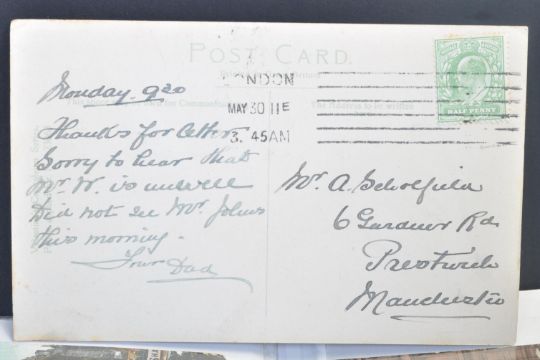 POST CARD.
LONDON
MAY 30 11 E
3. 45AM
HALF PENNY
Monday. 9 20
Thanks for letter
Sorry to hear that
Mr. W. is unwell
Did not see Mr. Johns
this morning.
Your Dad
The Address to be written
Mr. A. Scholfield
6 Gardner Rd
Prestwich
Manchester